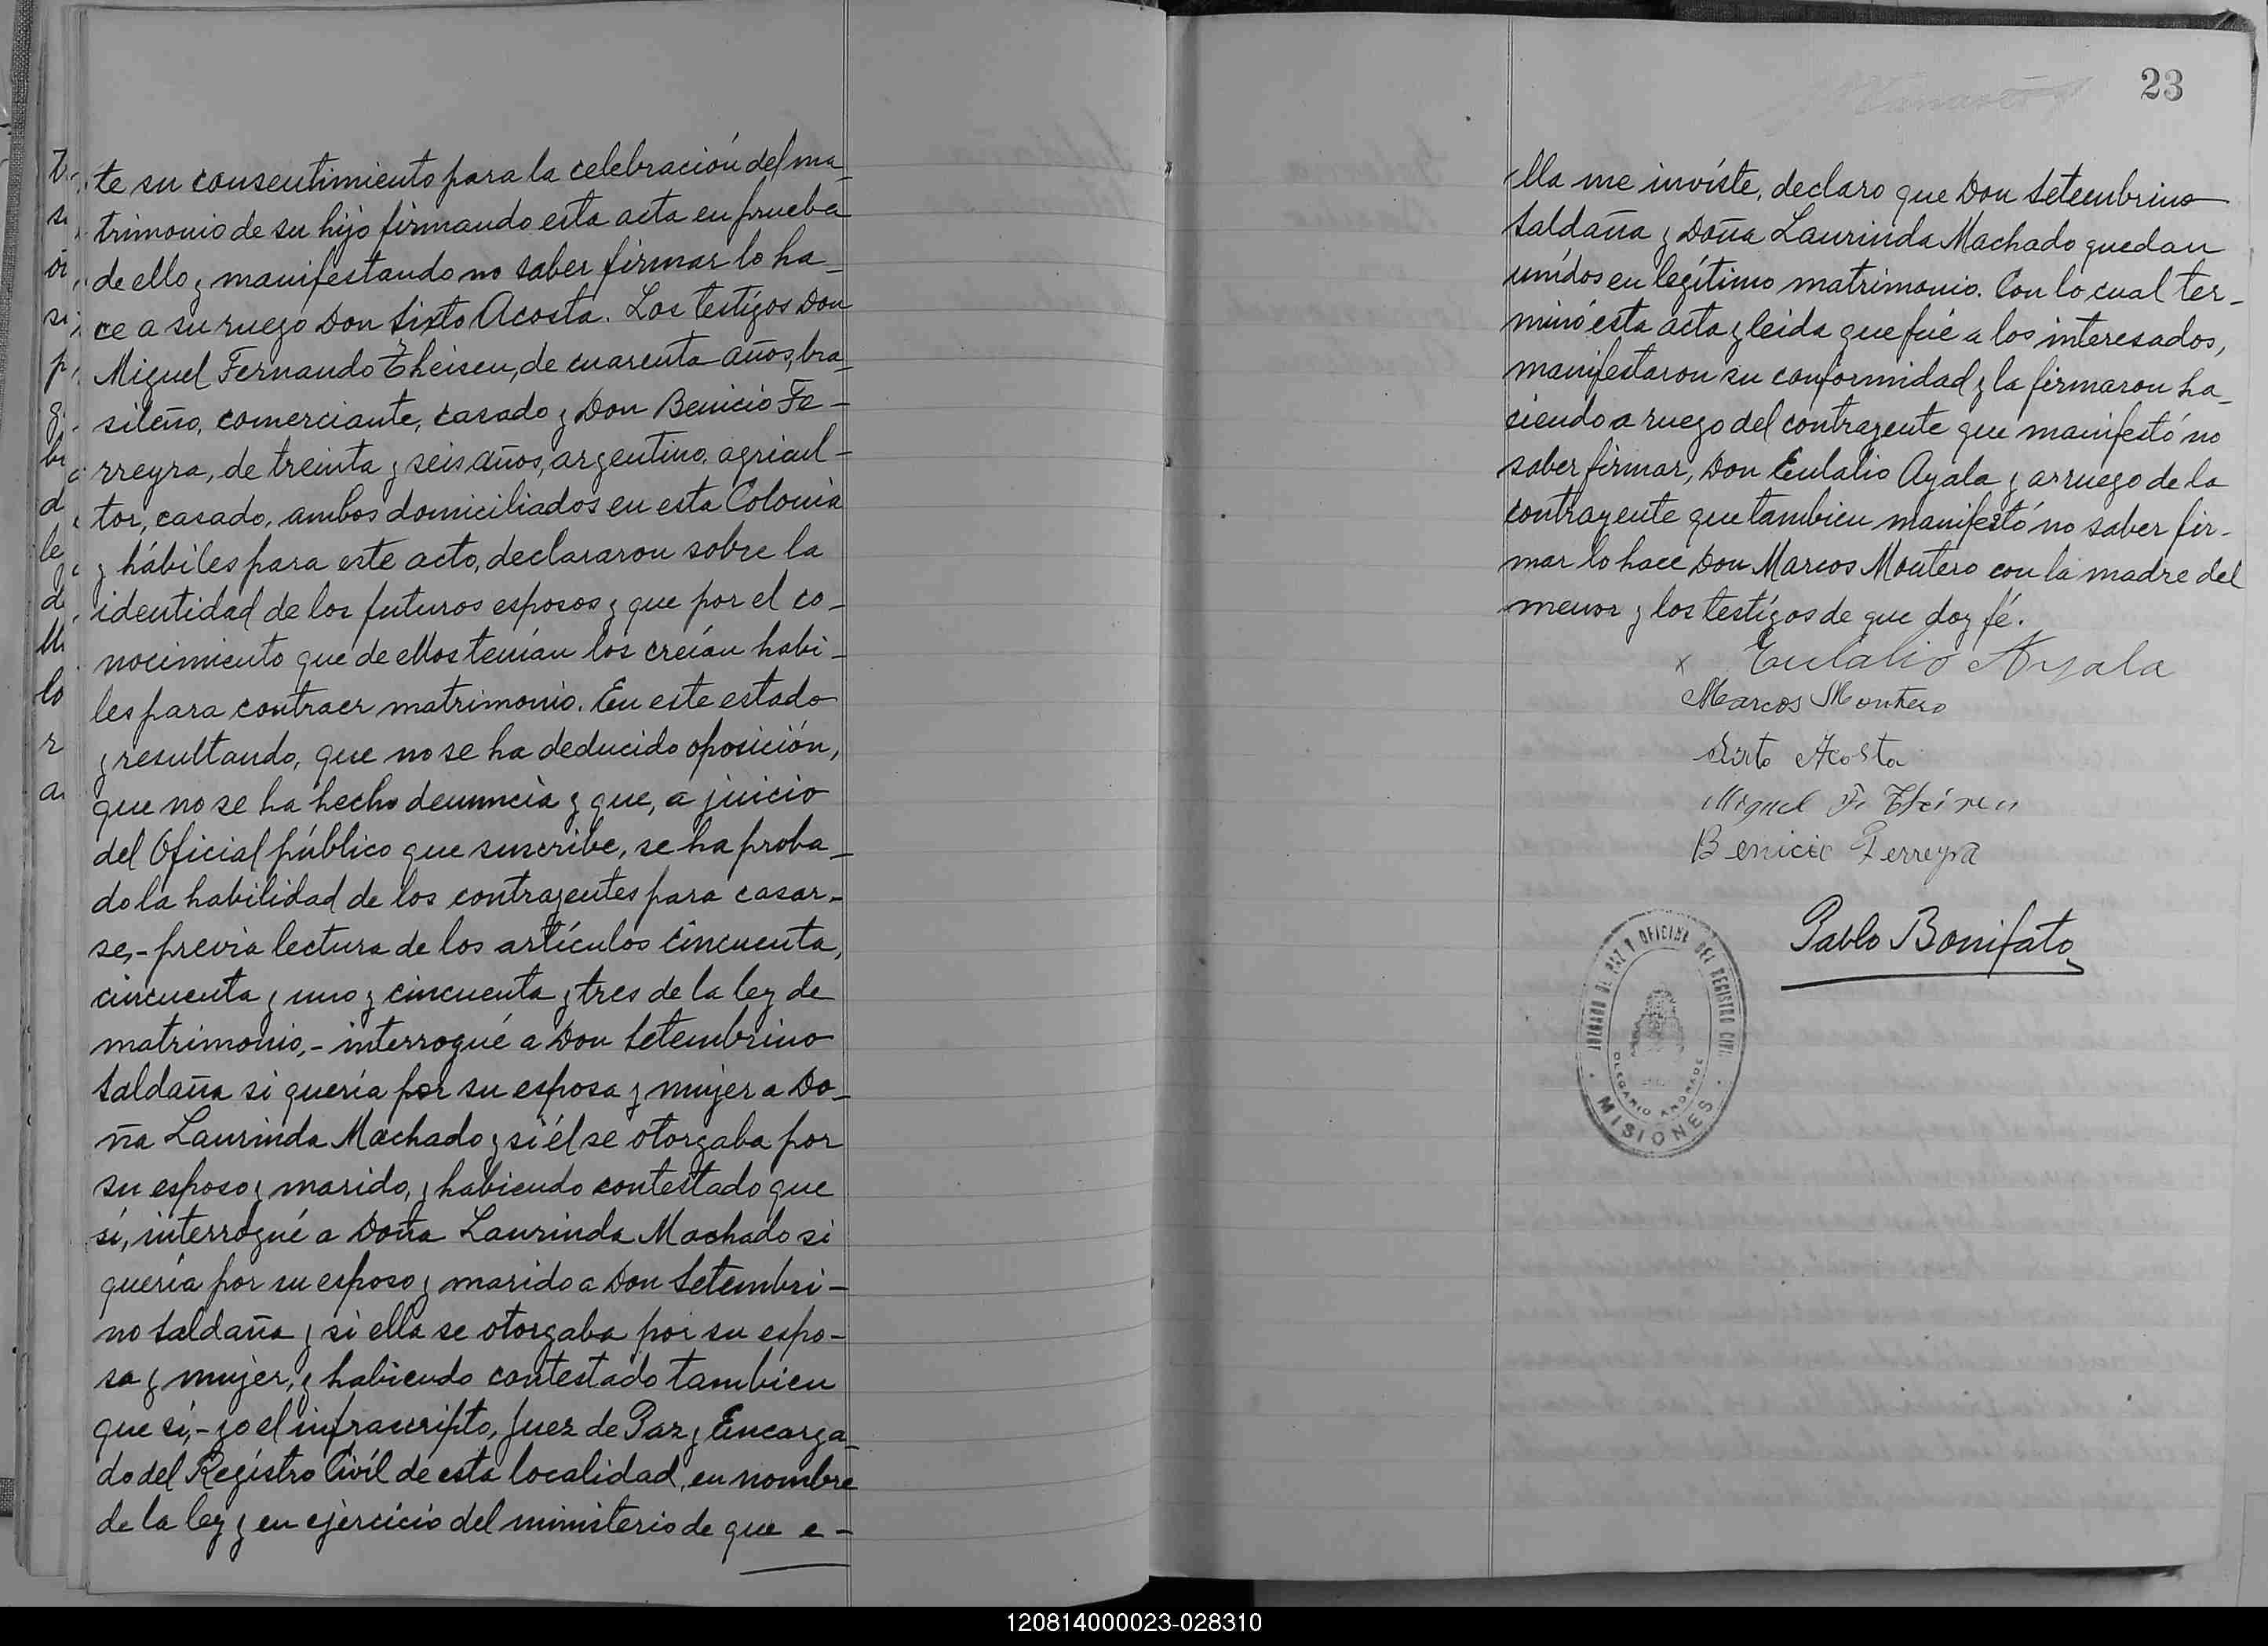 te su consentimiento para la celebración del ma_
trimonio de su hijo firmando esta acta en prueba
de ello y manifestando no saber firmar lo ha_
ce a su ruego Don Sixto Acosta. Los testigos Don
Miguel Fernando Theisen, de cuarenta años, bra_
sileño, comerciante, casado y Don Benicio Fe-
rreyra, de treinta y seis años, argentino, agricul-
tor, casado, ambos domiciliados en esta Colonia
y hábiles para este acto, declararon sobre la
identidad de los futuros esposos y que por el co-
nocimiento que de ellos tenían los creían habi-
les para contraer matrimonio. En este estado
y resultando, que no se ha deducido oposición,
que no se ha hecho denuncia y que, a juicio
del Oficial público que suscribe, se ha proba_
do la habilidad de los contrayentes para casar-
se,- previa lectura de los artículos cincuenta,
cincuenta y uno y cincuenta y tres de la ley de
matrimonio,- interrogué a Don Setembrino
Saldaña si quería por su esposa y mujer a Do_
ña Laurinda Machado y si él se otorgaba por
su esposo y marido, y habiendo contestado que
sí, interrogué a Doña Laurinda Machado si
quería por su esposo y marido a Don Setembri-
no Saldaña y si ella se otorgaba por su espo-
sa y mujer, y habiendo contestado tambien
que sí,- yo el infrascripto, Juez de Paz y Encarga_
do del Registro Civil de esta localidad, en nombre
de la ley y en ejercicio del ministerio de que e-
23
lla me inviste, declaro que Don Setembrino
Saldaña y Doña Laurinda Machado quedan
unidos en legítimo matrimonio. Con lo cual ter-
minó esta acta y leida que fué a los interesados,
manifestaron su conformidad y la firmaron ha_
ciendo a ruego del contrayente que manifestó no
saber firmar, Don Eulalio Ayala y a rruego de la
contrayente que tambien manifestó no saber fir-
mar lo hace Don Marcos Montero con la madre del
menor y los testigos de que doy fé.
x Eulalio Ayala
Marcos Montero
Sixto Acosta
Miguel F. Theisen
Benicio Ferreyra
Pablo Bonifato
JUZGADO DE PAZ Y OFICINA DEL REGISTRO CIVIL
OLEGARIO ANDRADE
MISIONES
120814000023-028310